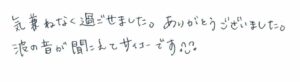 気兼ねなく過ごせました。ありがとうございました。
波の音が聞こえてサイコーです